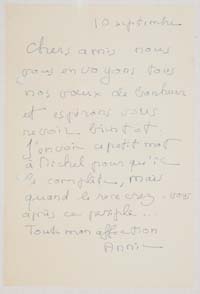 10 septembre
Chers amis nous
vous envoyons tous
nos vœux de bonheur
et espérons vous
revoir bientôt.
J'envoie ce petit mot
à Michel pour qu'il
le complète, mais
quand le recevrez-vous
après ce périple...
Toute mon affection
Annie